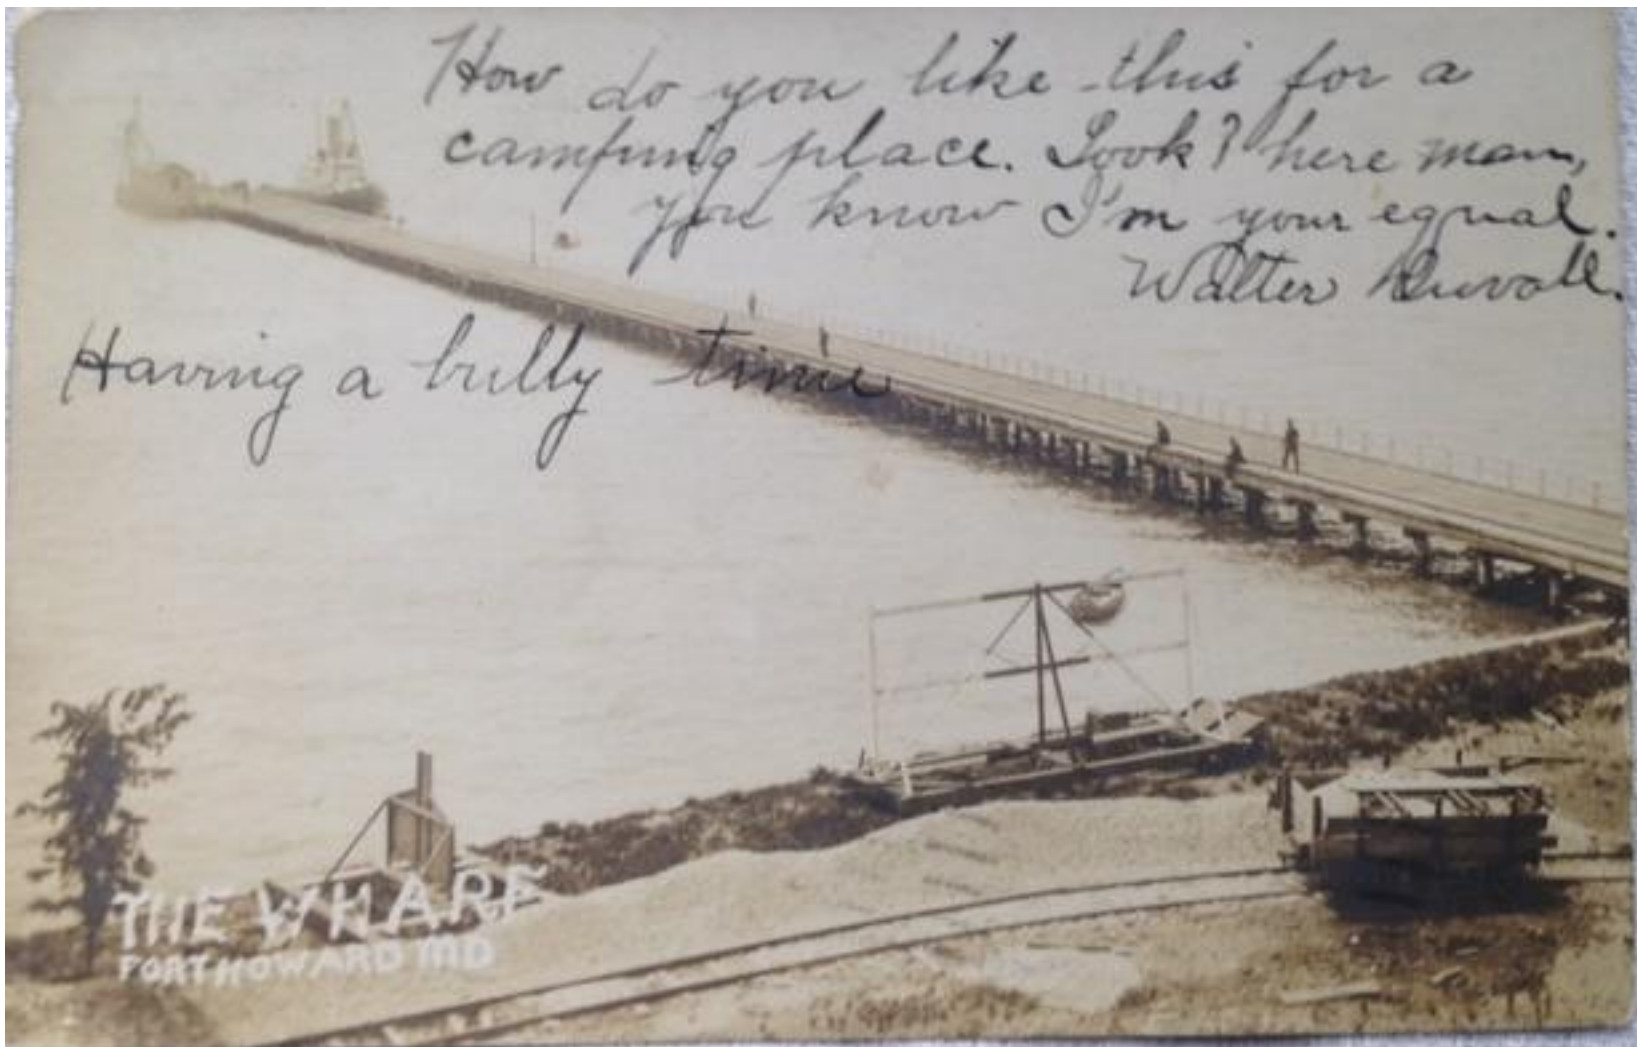 How do you like this for a
camping place. Look? here man,
you know I'm your equal.
Walter Duvall.
Having a bully time
THE WHARF
FORT HOWARD MD